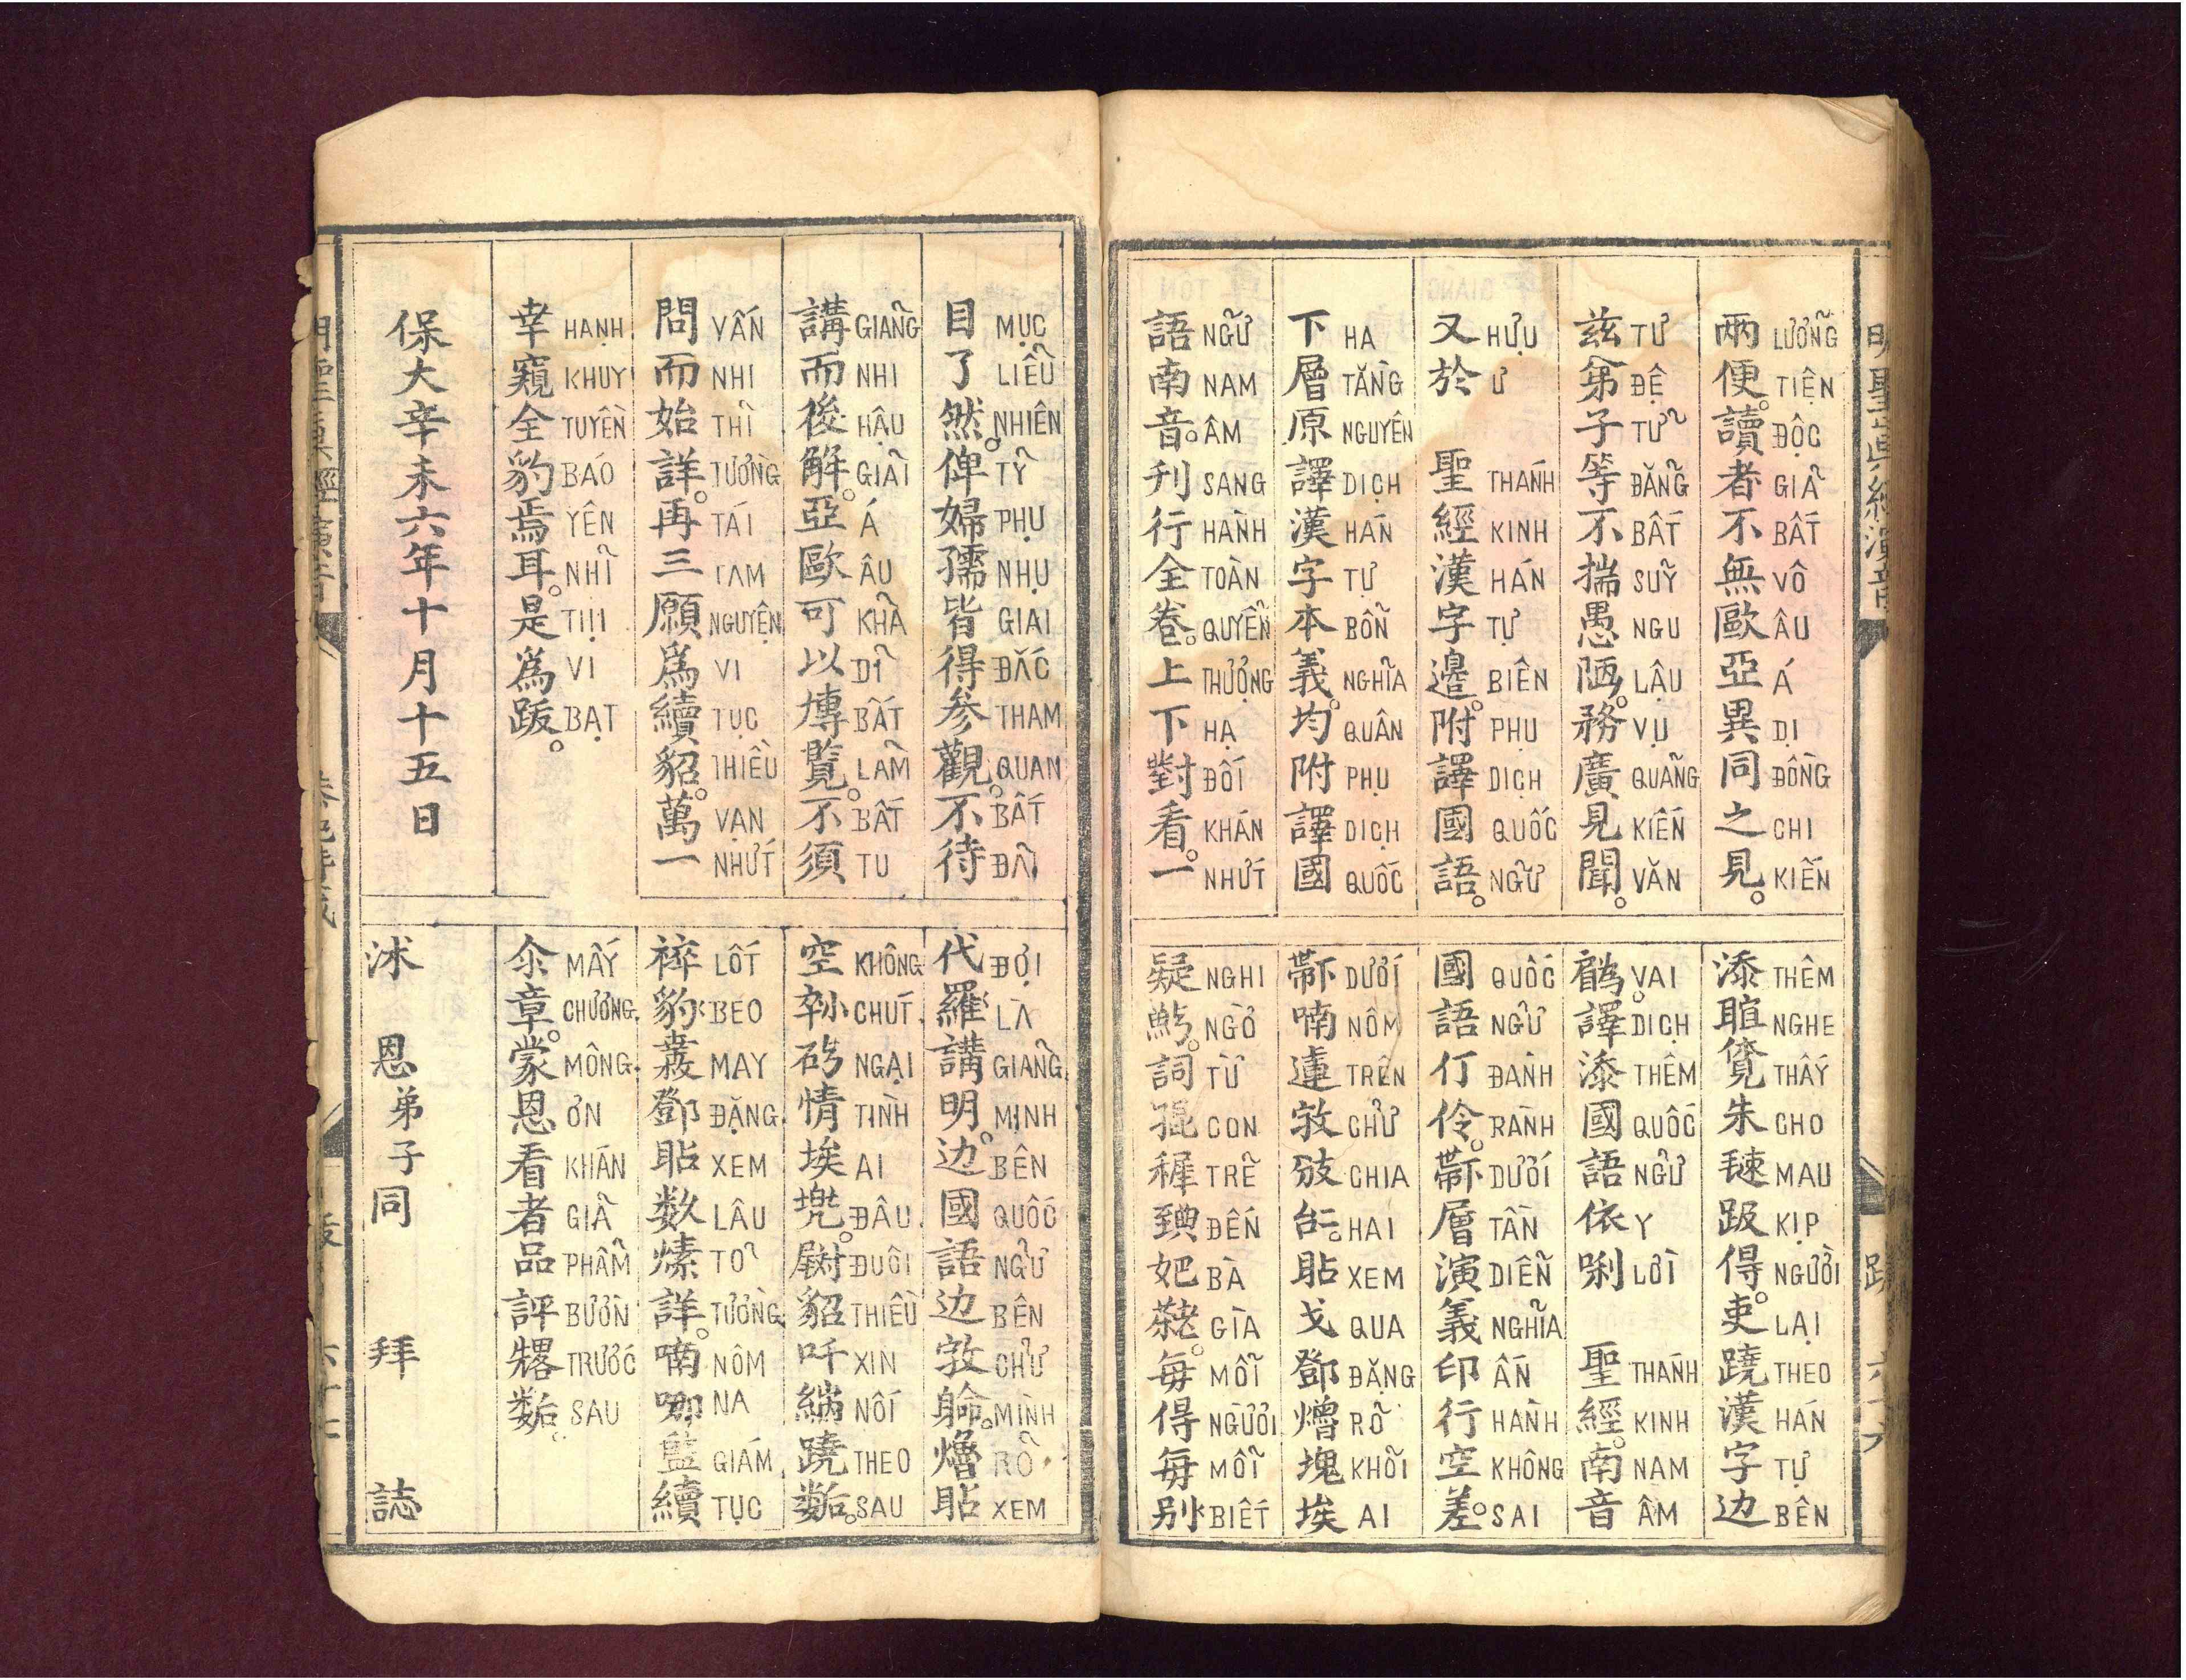 兩便。讀者不無歐亞異同之見。
LƯỠNG TIỆN ĐỘC GIẢ BẤT VÔ ÂU Á DỊ ĐỒNG CHI KIẾN
茲弟子等不揣愚陋。務廣見聞。
TƯ ĐỆ TỬ ĐẲNG BẤT SUỸ NGU LẬU VỤ QUẢNG KIẾN VĂN
又於聖經漢字邉。附譯國語。
HỰU Ư THÁNH KINH HÁN TỰ BIÊN PHỤ DỊCH QUỐC NGỮ
下層原譯漢字本義。均附譯國
HẠ TẰNG NGUYÊN DỊCH HÁN TỰ BỔN NGHĨA QUÂN PHỤ DỊCH QUỐC
語南音。刋行全卷。上下對看。一
NGỮ NAM ÂM SANG HÀNH TOÀN QUYỂN THƯỢNG HẠ ĐỐI KHÁN NHỨT
添 朱 得。吏 蹺漢字边
THÊM NGHE THẤY CHO MAU KỊP NGƯỜI LẠI THEO HÁN TỰ BÊN
譯添國語依唎聖經。南音
VAI DỊCH THÊM QUỐC NGỮ Y LỜI THÁNH KINH NAM ÂM
國語仃伶。層演義印行空差。
QUỐC NGỮ ĐÀNH RÀNH DƯỚI TẦN DIỄN NGHĨA ẤN HÀNH KHÔNG SAI
喃 貼戈鄧 塊埃
DƯỚI NÔM TRÊN CHỮ CHIA HAI XEM QUA ĐẶNG RÕ KHỎI AI
疑 詞 妑 每得每别
NGHI NGỜ TỪ CON TRẺ ĐẾN BÀ GIÀ MỖI NGƯỜI MỖI BIẾT
目了然。俾婦孺皆得参觀。不待
MỤC LIỄU NHIÊN TỶ PHỤ NHỤ GIAI ĐẮC THAM QUAN BẤT ĐÃI
講而後解。亞歐可以塼覧。不須
GIẢNG NHI HẬU GIẢI Á ÂU KHẢ DĨ BẤT LÃM BẤT TU
問而始詳。再三願爲續貂。萬一
VẤN NHI THỈ TƯỜNG TÁI TAM NGUYỆN VI TỤC THIỀU VẠN NHỨT
幸窺全豹焉耳。是爲跋。
HẠNH KHUY TUYỀN BÁO YÊN NHĨ THỊ VI BẠT
保大辛未六年十月十五日
代羅講明。边國語边 貼
ĐỢI LÀ GIẢNG MINH BÊN QUỐC NGỮ BÊN CHỮ MÌNH RÕ XEM
空 情埃 貂吀 蹺
KHÔNG CHÚT NGẠI TÌNH AI ĐÂU ĐUÔI THIỀU XIN NỐI THEO SAU
豹 鄧貼数 詳。喃 監續
LỐT BEO MAY ĐẶNG XEM LÂU TỎ TƯỜNG NÔM NA GIÁM TỤC
章。蒙恩看者品評
MẤY CHƯƠNG MÔNG ƠN KHÁN GIẢ PHẨM BƯỜN TRƯỚC SAU
沭恩弟子同拜誌